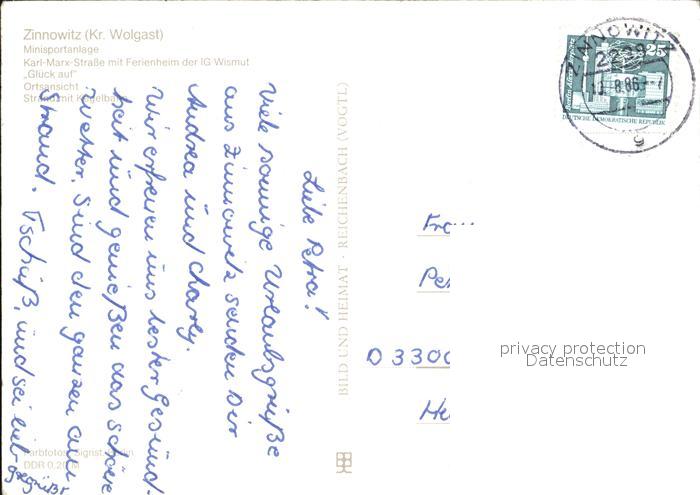 Zinnowitz (Kr. Wolgast)
Minisportanlage
Karl-Marx-Straße mit Ferienheim der IG Wismut
„Glück auf"
Ortsansicht
Strand mit Kegelbahn
Liebe Petra!
Viele sonnige Urlaubsgrüße
aus Zinnowitz senden Dir
Andrea und Charly.
Wir erfreuen uns bester Gesund-
heit und genießen das schöne
Wetter. Sind den ganzen am
Strand. Tschüß, und sei lieb
gegrüßt
Farbfotos:
DDR 0,20 M
BILD UND HEIMAT · REICHENBACH (VOGTL)
ZINNOWITZ
2238
8.86
g
25
DEUTSCHE DEMOKRATISCHE REPUBLIK
Fra...
Pet
D 3300
He
privacy protection
Datenschutz